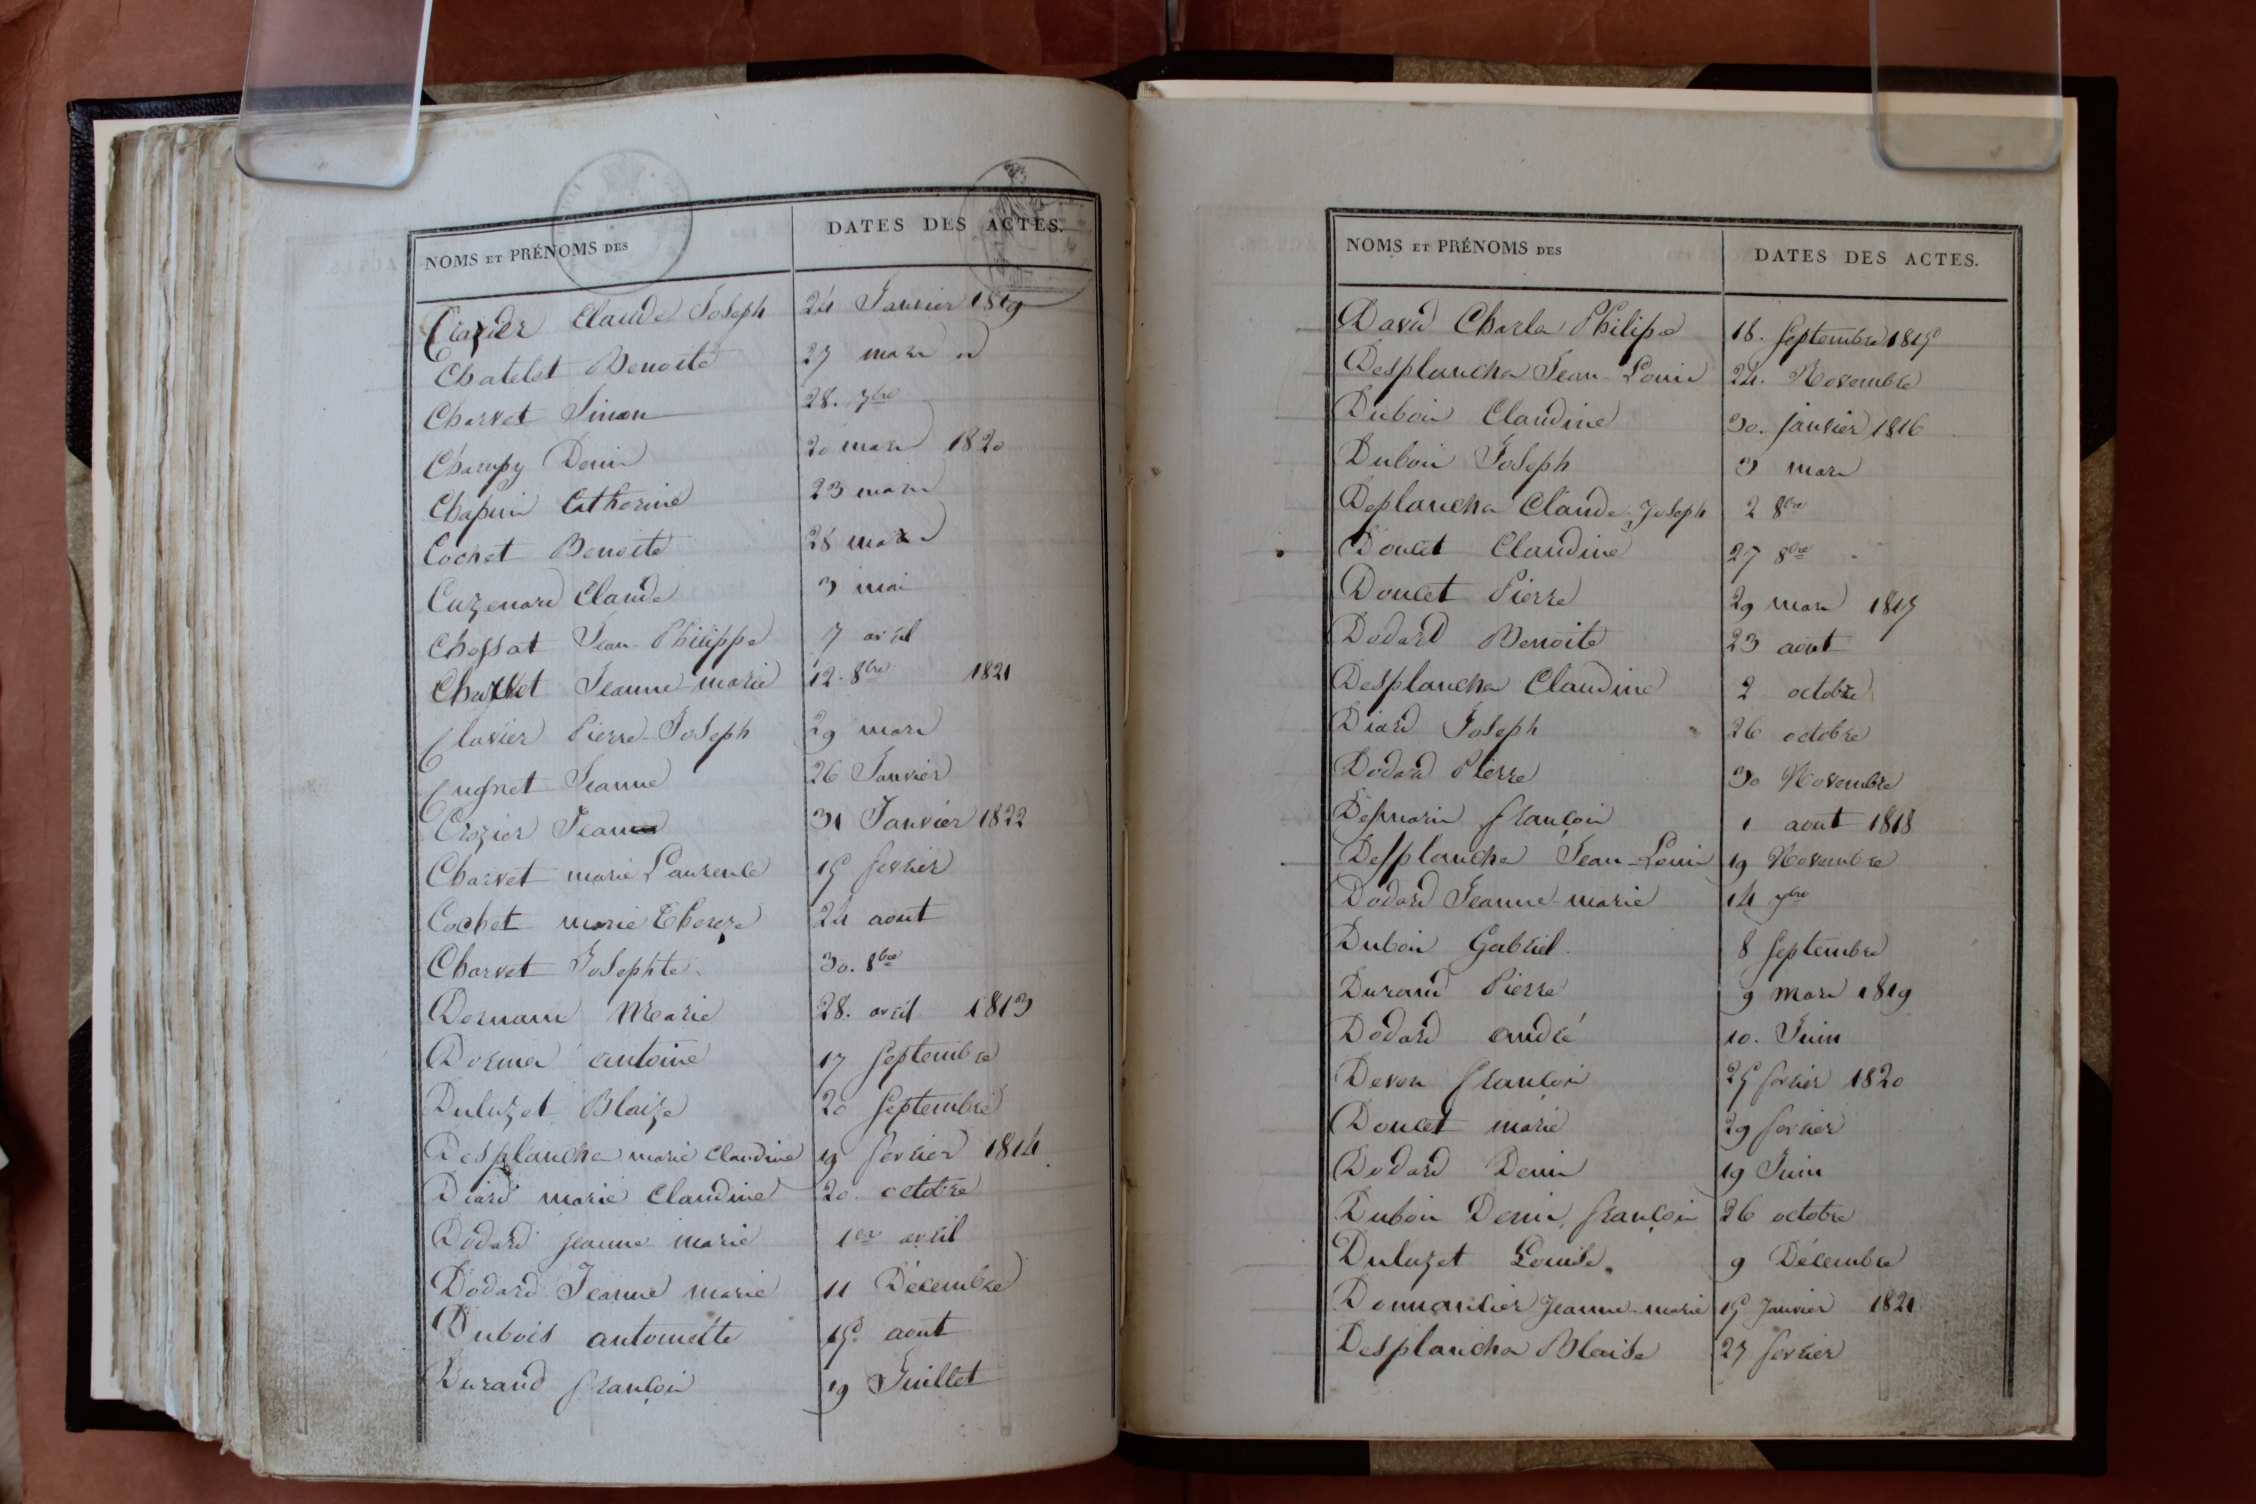 NOMS ET PRÉNOMS DES DATES DES ACTES.
Clavier Claude Joseph 24 Janvier 1819
Chatelet Benoite 27 mars
Charvet Simon 28. 7bre
Champy Denis 20 mars 1820
Chapuis Catherine 23 mars
Cochet Benoite 28 mars
Cuzenard Claude 3 mai
Chossat Jean Philippe 7 avril
Charvet Jeanne marie 12. 8bre 1821
Clavier Pierre Joseph 29 mars
Cugnet Jeanne 26 Janvier
Crozier Jean 31 Janvier 1822
Charvet marie Laurence 15 fevrier
Cochet marie Thereze 24 aout
Charvet Josephte 30. 8bre
Marie 28. avril 1813
antoine 17 Septembre
Duluzet Blaize 20 Septembre
Desplanches marie Claudine 19 fevrier 1814
Diard marie Claudine 20. octobre
Dodard jeanne marie 1er avril
Dodard Jeanne marie 11 Décembre
Dubois antoinette 15. aout
Durand françois 19 Juillet
NOMS ET PRÉNOMS DES DATES DES ACTES.
David Charles Philipe 18. Septembre 1815
Desplanches Jean Louis 24. Novembre
Dubois Claudine 30. janvier 1816
Dubois Joseph 3 mars
Deplanches Claude Joseph 2 8bre
Doucet Claudine 27 8bre
Doucet Pierre 29 mars 1817
Dodard Benoite 23 aout
Desplanches Claudine 2 octobre
Diard Joseph 26 octobre
Dodard Pierre 30 Novembre
Desmaris françois 1 aout 1818
Desplanches Jean Louis 19 Novembre
Dodard Jeanne marie 14 7bre
Dubois Gabriel. 8 Septembre
Durand Pierre 9 mars 1819
Dodard andré 10. Juin
françois 25 fevrier 1820
Doucet marie 29 fevrier
Dodard Denis 19 Juin
Dubois Denis françois 26 octobre
Duluzet Louise. 9 Décembre
Jeanne marie 15 Janvier 1821
Desplanches Blaise 27 fevrier